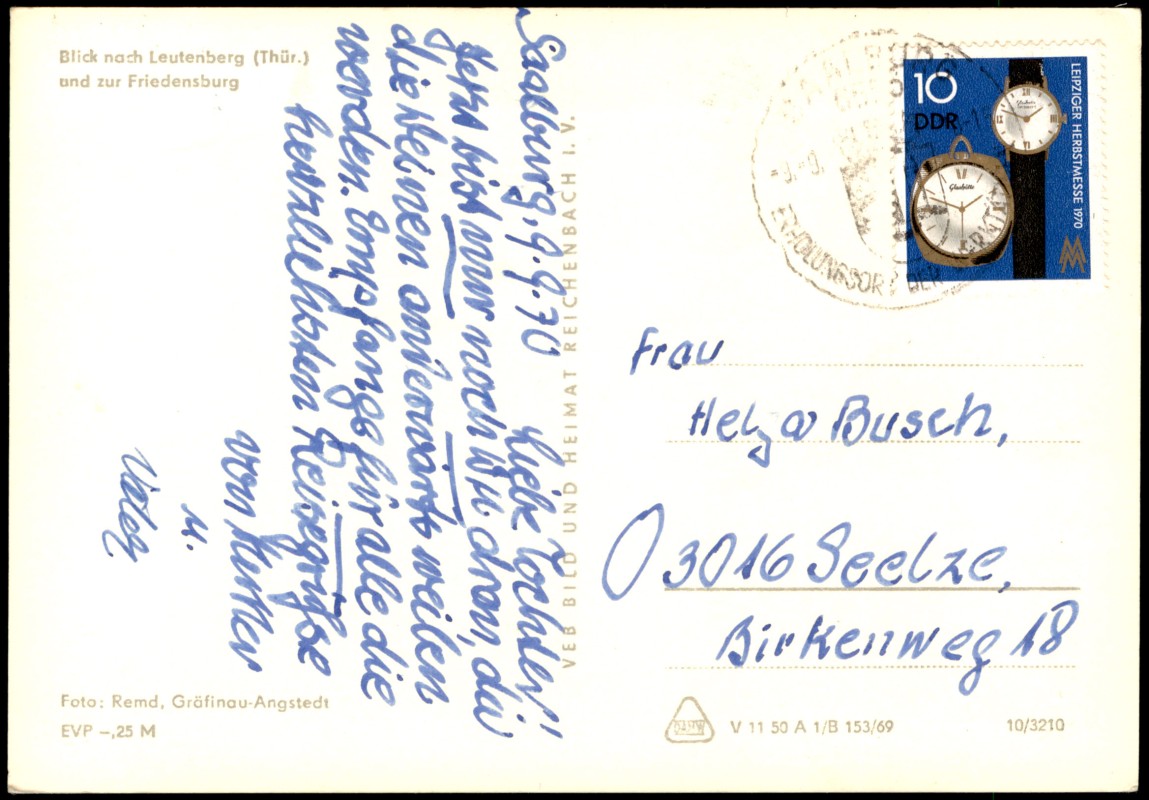 Blick nach Leutenberg (Thür.)
und zur Friedensburg
Saalburg, 9.9.70 Liebe Tochter!
Jetzt bist nur noch dran, da
die Deinen anderwärts weilen
werden. Empfange für alle die
herzlichsten Reisegrüße
von Mutter
u.
Vater
Foto: Remd, Gräfinau-Angstedt
EVP –,25 M
VEB BILD UND HEIMAT REICHENBACH I. V.
ERHOLUNGSORT DER
10
DDR
Glashütte
LEIPZIGER HERBSTMESSE 1970
Frau
Helga Busch,
03016 Seelze,
Birkenweg 18
V 11 50 A 1/B 153/69
10/3210